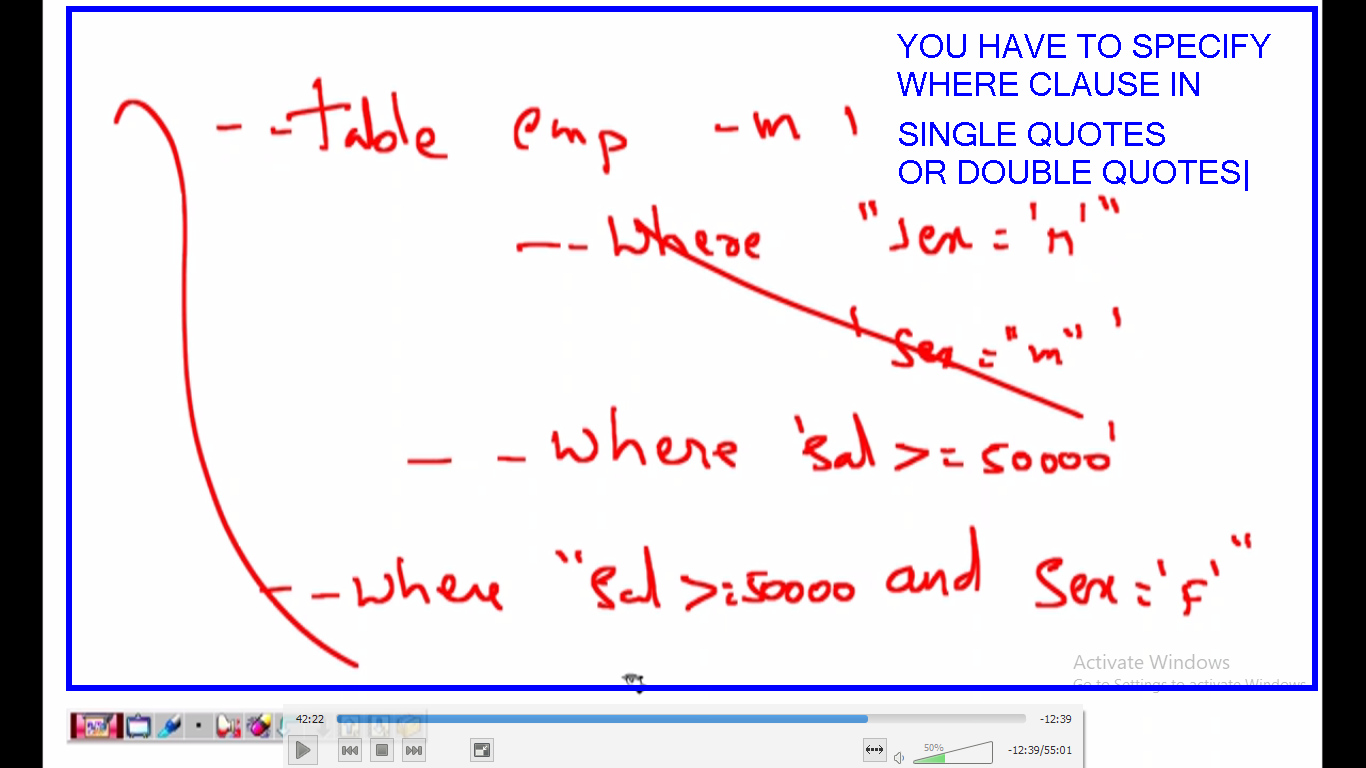 YOU HAVE TO SPECIFY
WHERE CLAUSE IN
SINGLE QUOTES
OR DOUBLE QUOTES|
--Table emp -m 1
--Where "sex = 'm'"
'sex = "m"'
--where 'sal >= 50000'
--where "sal >= 50000 and sex = 'F'"
Activate Windows
Go to Settings to activate Windows.
42:22
-12:39
50%
-12:39/55:01